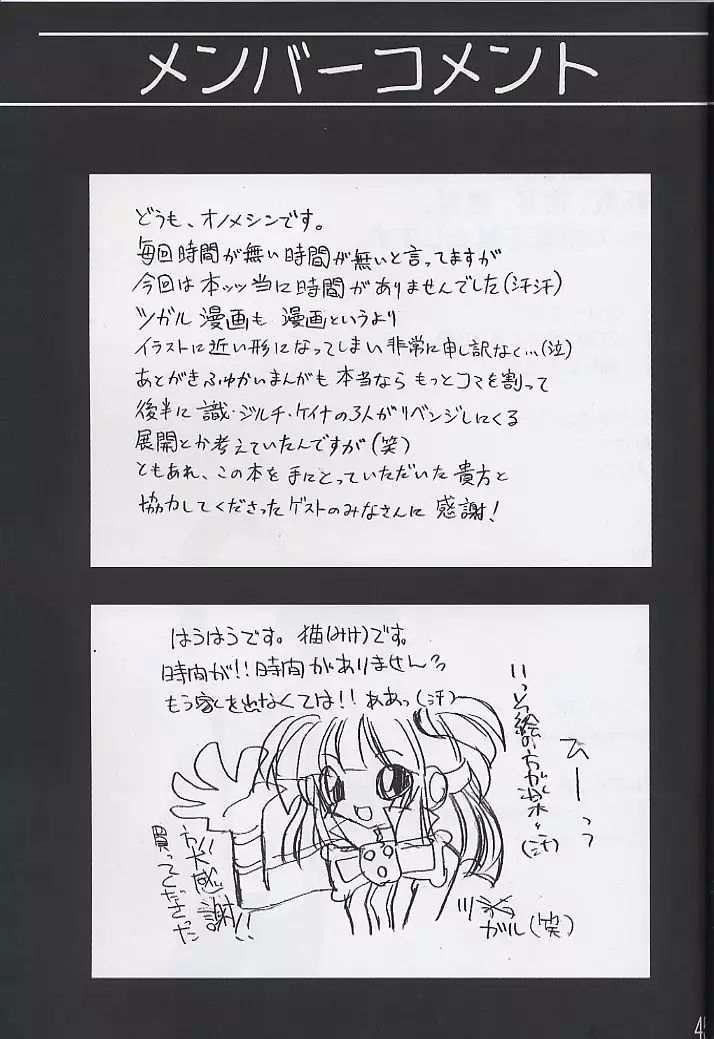 メンバーコメント
どうも、オノメシンです。
毎回時間が無い時間が無いと言ってますが
今回は本ッッ当に時間がありませんでした(汗汗)
ツガル漫画も 漫画というより
イラストに近い形になってしまい非常に申し訳なく…(泣)
あとがきふゆかいまんがも 本当なら もっとコマを割って
後半に 識・ジルチ・ケイナの3人がリベンジしにくる
展開とか考えていたんですが(笑)
ともあれ、この本を手にとっていただいた貴方と
協力してくださったゲストのみなさんに 感謝!
はうはうです。猫(みけ)です。
時間が!!時間がありません
もう家を出なくては!!ああっ(汗)
絵の方が
(汗)
ひーっ
買ってくださった
方々に
感謝!!
ツ
ガル(笑)
4